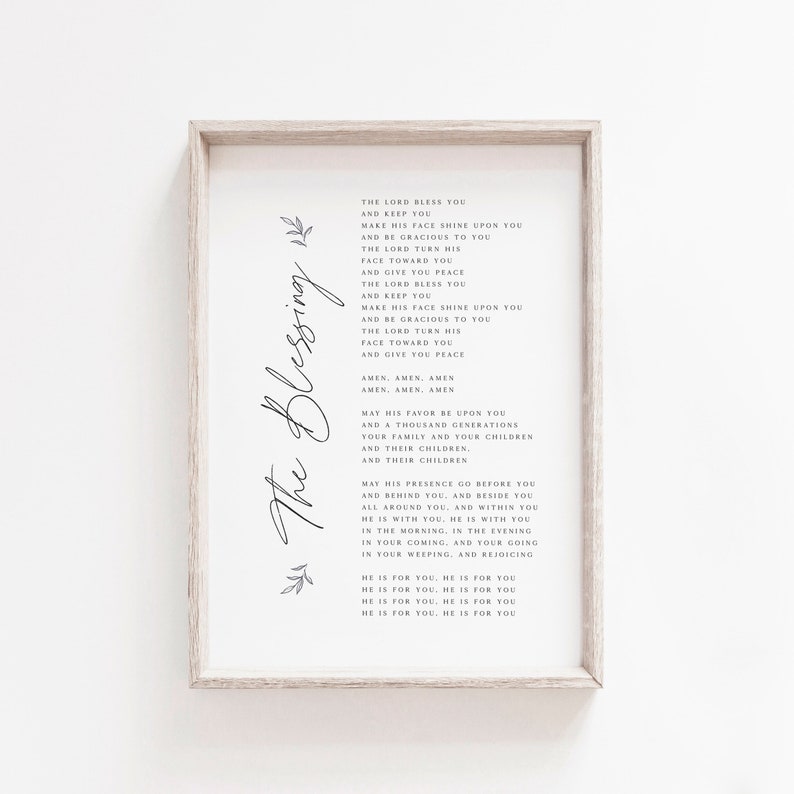 The Blessing
THE LORD BLESS YOU
AND KEEP YOU
MAKE HIS FACE SHINE UPON YOU
AND BE GRACIOUS TO YOU
THE LORD TURN HIS
FACE TOWARD YOU
AND GIVE YOU PEACE
THE LORD BLESS YOU
AND KEEP YOU
MAKE HIS FACE SHINE UPON YOU
AND BE GRACIOUS TO YOU
THE LORD TURN HIS
FACE TOWARD YOU
AND GIVE YOU PEACE
AMEN, AMEN, AMEN
AMEN, AMEN, AMEN
MAY HIS FAVOR BE UPON YOU
AND A THOUSAND GENERATIONS
YOUR FAMILY AND YOUR CHILDREN
AND THEIR CHILDREN,
AND THEIR CHILDREN
MAY HIS PRESENCE GO BEFORE YOU
AND BEHIND YOU, AND BESIDE YOU
ALL AROUND YOU, AND WITHIN YOU
HE IS WITH YOU, HE IS WITH YOU
IN THE MORNING, IN THE EVENING
IN YOUR COMING, AND YOUR GOING
IN YOUR WEEPING, AND REJOICING
HE IS FOR YOU, HE IS FOR YOU
HE IS FOR YOU, HE IS FOR YOU
HE IS FOR YOU, HE IS FOR YOU
HE IS FOR YOU, HE IS FOR YOU